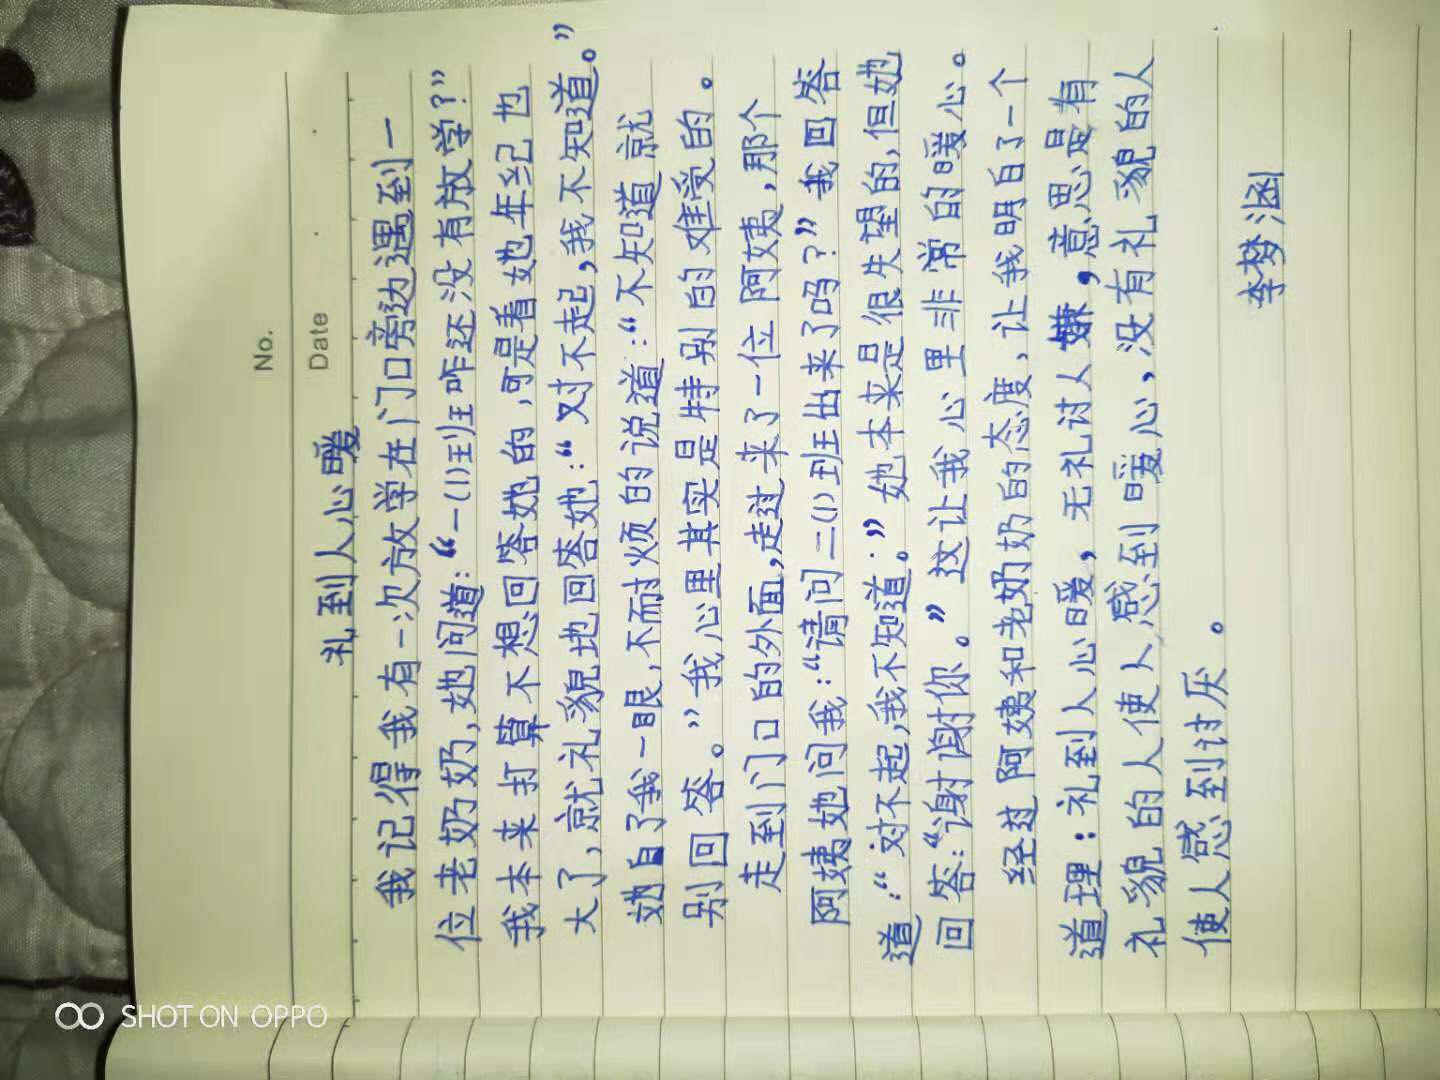 No.
Date
礼到人心暖
我记得我有一次放学在门口旁边遇到一
位老奶奶,她问道:“一(1)班咋还没有放学?”
我本来打算不想回答她的,可是看她年纪也
大了,就礼貌地回答她:“对不起,我不知道。”
她白了我一眼,不耐烦的说道:“不知道就
别回答。”我心里其实是特别的难受的。
走到门口的外面,走过来了一位阿姨,那个
阿姨她问我:“请问二(1)班出来了吗?”我回答
道:“对不起,我不知道。”她本来是很失望的,但她
回答:“谢谢你。”这让我心里非常的暖心。
经过阿姨和老奶奶的态度,让我明白了一个
道理:礼到人心暖,无礼讨人嫌,意思是有
礼貌的人使人感到暖心,没有礼貌的人
使人感到讨厌。
李梦涵
SHOT ON OPPO